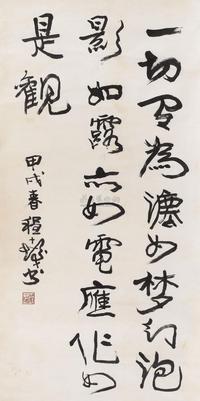 一切有為法如梦幻泡
影如露亦如電應作如
是觀
甲戌春程十髮书